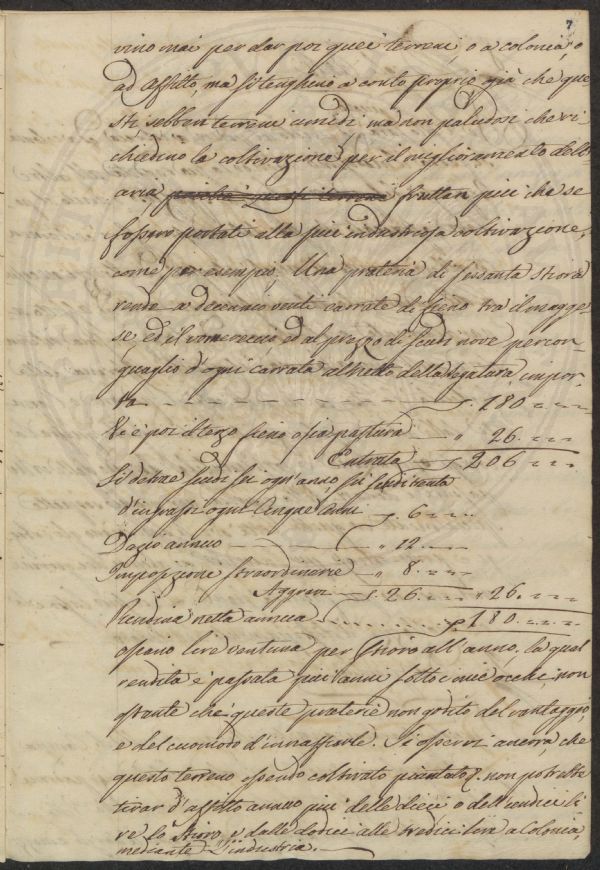 7
vino mai per dar poi quei terreni, o a colonia, o
ad Affitto, ma si tenghino a conto proprio, già che que
sti sebben terreni umidi, ma non paludosi che ri
chiedino la coltivazione per il miglioramento dell'
aria fruttan più che se
fossero portati alla più industriosa coltivazione,
come per esempio, Una prateria di sessanta stiora
rende a decennio venti carrate di fieno tra il magge
se, ed il ed al prezzo di scudi nove per con
guaglio d'ogni carrata al netto della segatura, impor
ta 180
Vi è poi il terzo fieno o sia pastura 26
Entrata 206
Si detrae scudi sei ogn'anno, scudi trenta
d'ingrassi ogni Cinque anni 6
Dazio annuo 12
Imposizioni straordinarie 8
Aggravi 26 26
Rendita netta annua 180
ossiano lire ventuna per Stioro all'anno, la qual
rendita è passata più anni sotto i miei occhi, non
ostante che queste praterie non godino del vantaggio,
e del cuomodo d'innaffiarle. Si osservi ancora, che
questo terreno essendo coltivato piantato non potrebbe
tirar d'affitto annuo più delle dieci o dell'undici li
re lo Stioro, e dalle dodici alle tredici lire a Colonia,
mediante l'industria.